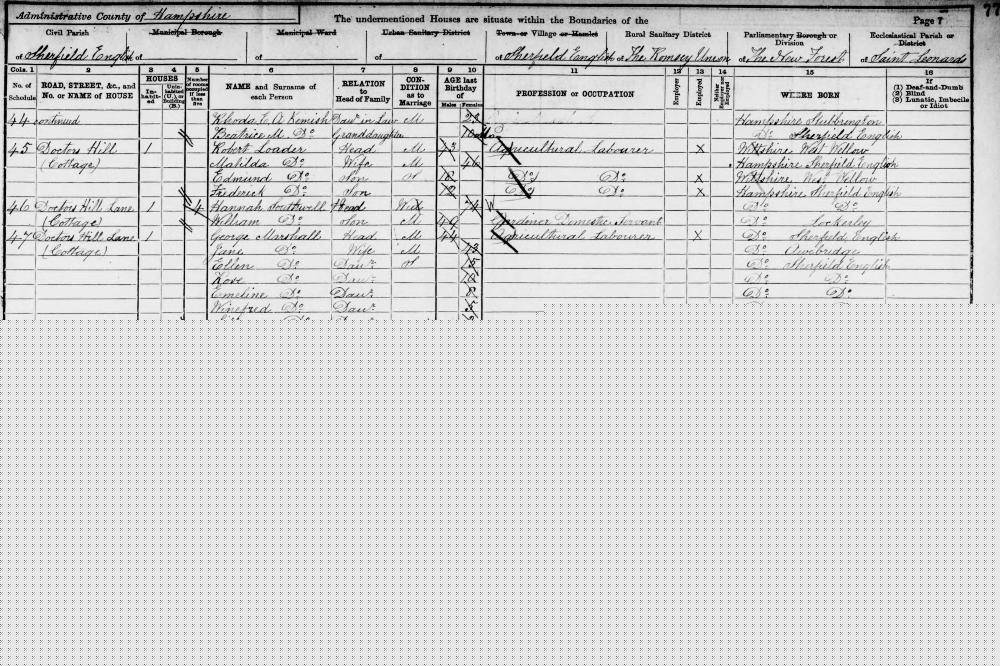 Administrative County of Hampshire
The undermentioned Houses are situate within the Boundaries of the
Page 7
77
Civil Parish
Municipal Borough
Municipal Ward
Urban Sanitary District
Town or Village or Hamlet
Rural Sanitary District
Parliamentary Borough or Division
Ecclesiastical Parish or District
of Sherfield English of of of of Sherfield English of The Romsey Union of The New Forest of Saint Leonards
Cols. 1 2 3 4 5 6 7 8 9 10 11 12 13 14 15 16
No. of Schedule
ROAD, STREET, &c., and No. or NAME of HOUSE
HOUSES
Inhabited
Uninhabited (U.), or Building (B.)
Number of rooms occupied if less than five
NAME and Surname of each Person
RELATION to Head of Family
CONDITION as to Marriage
AGE last Birthday of
Males Females
PROFESSION or OCCUPATION
Employer
Employed
Neither Employer nor Employed
WHERE BORN
If
(1) Deaf-and-Dumb
(2) Blind
(3) Lunatic, Imbecile or Idiot
44 continued Kemish Daur in Law M 23 Hampshire
Beatrice M. Do Granddaughter Do Sherfield English
45 Doctors Hill 1 Robert Loader Head M 43 Agricultural Labourer X Wiltshire West Wellow
(Cottage) Matilda Do Wife M 46 Hampshire Sherfield English
Edmund Do Son S Do Do X Wiltshire West Wellow
Frederick Do Son Do Do X Hampshire Sherfield English
46 Doctors Hill Lane 1 4 Hannah Southwell Head Wid 74 Do Do
(Cottage) William Do Son M 40 Gardener Domestic Servant Do Lockerley
47 Doctors Hill Lane 1 George Marshall Head M 44 Agricultural Labourer X Do Sherfield English
(Cottage) Jane Do Wife M Do Awbridge
Ellen Do Daur S 15 Do Sherfield English
Love Do Daur 10 Do Do
Emeline Do Daur 8 Do Do
Winefred Do Daur 5